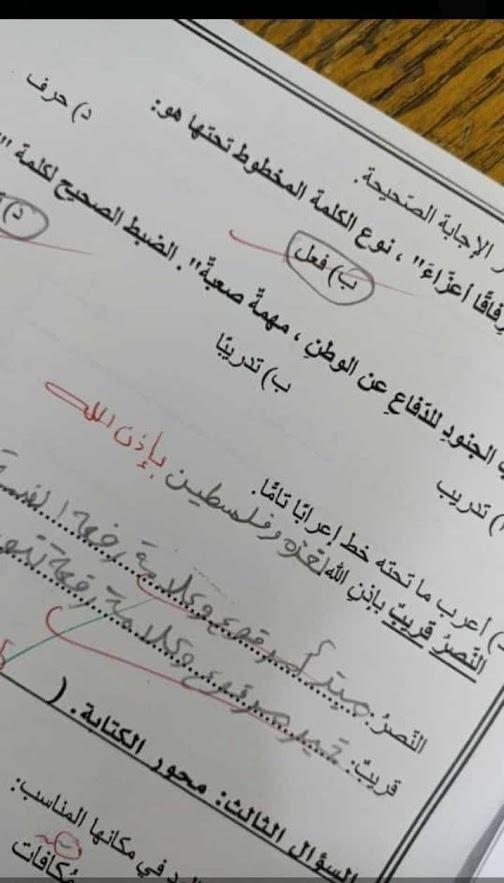 ر الإجابة الصحيحة.
رفاقًا أعزّاءَ" ، نوع الكلمة المخطوط تحتها هو:
ب) فعل
د) حرف
الجنودِ للدّفاعِ عن الوطنِ ، مهمةٌ صعبةٌ". الضبط الصحيح لكلمة "
ا) تدريب
ب) تدريبًا
د)
) أعرب ما تحته خط إعرابًا تامًا.
النّصرُ قريبٌ بإذن الله لغزة وفلسطين بإذن الله
النّصرُ: مبتدأ مرفوع وعلامة رفعه الضمة
قريبٌ: خبر مرفوع وعلامة رفعه تنوين
السؤال الثالث: محور الكتابة. (
في مكانها المناسب:
مُكافات